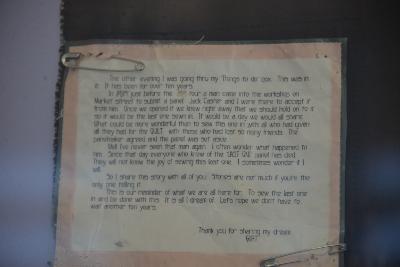 The other evening I was going thru my 'Things to do' box. This was in
it. It has been for over ten years.
In just before the tour a man came into the workshop on
Market street to submit a panel. Jack Caster and I were there to accept it
from him. Once we opened it we knew right away that we should hold on to it
so it would be the last one sewn in. It would be a day we would all share.
What could be more wonderful than to sew this one in with all who had given
all they had for the QUILT with those who had lost so many friends. The
panelmaker agreed and the panel was set aside.
Well I've never seen that man again. I often wonder what happened to
him. Since that day everyone who knew of the 'LAST ONE' panel has died.
They will not know the joy of sewing this last one. I sometimes wonder if I
will.
So I share this story with all of you. Stories are not much if you're the
only one telling it.
This is our reminder of what we are all here for. To sew the last one
in and be done with this. It is all I dream of. Let's hope we don't have to
wait another ten years.
Thank you for sharing my dream.